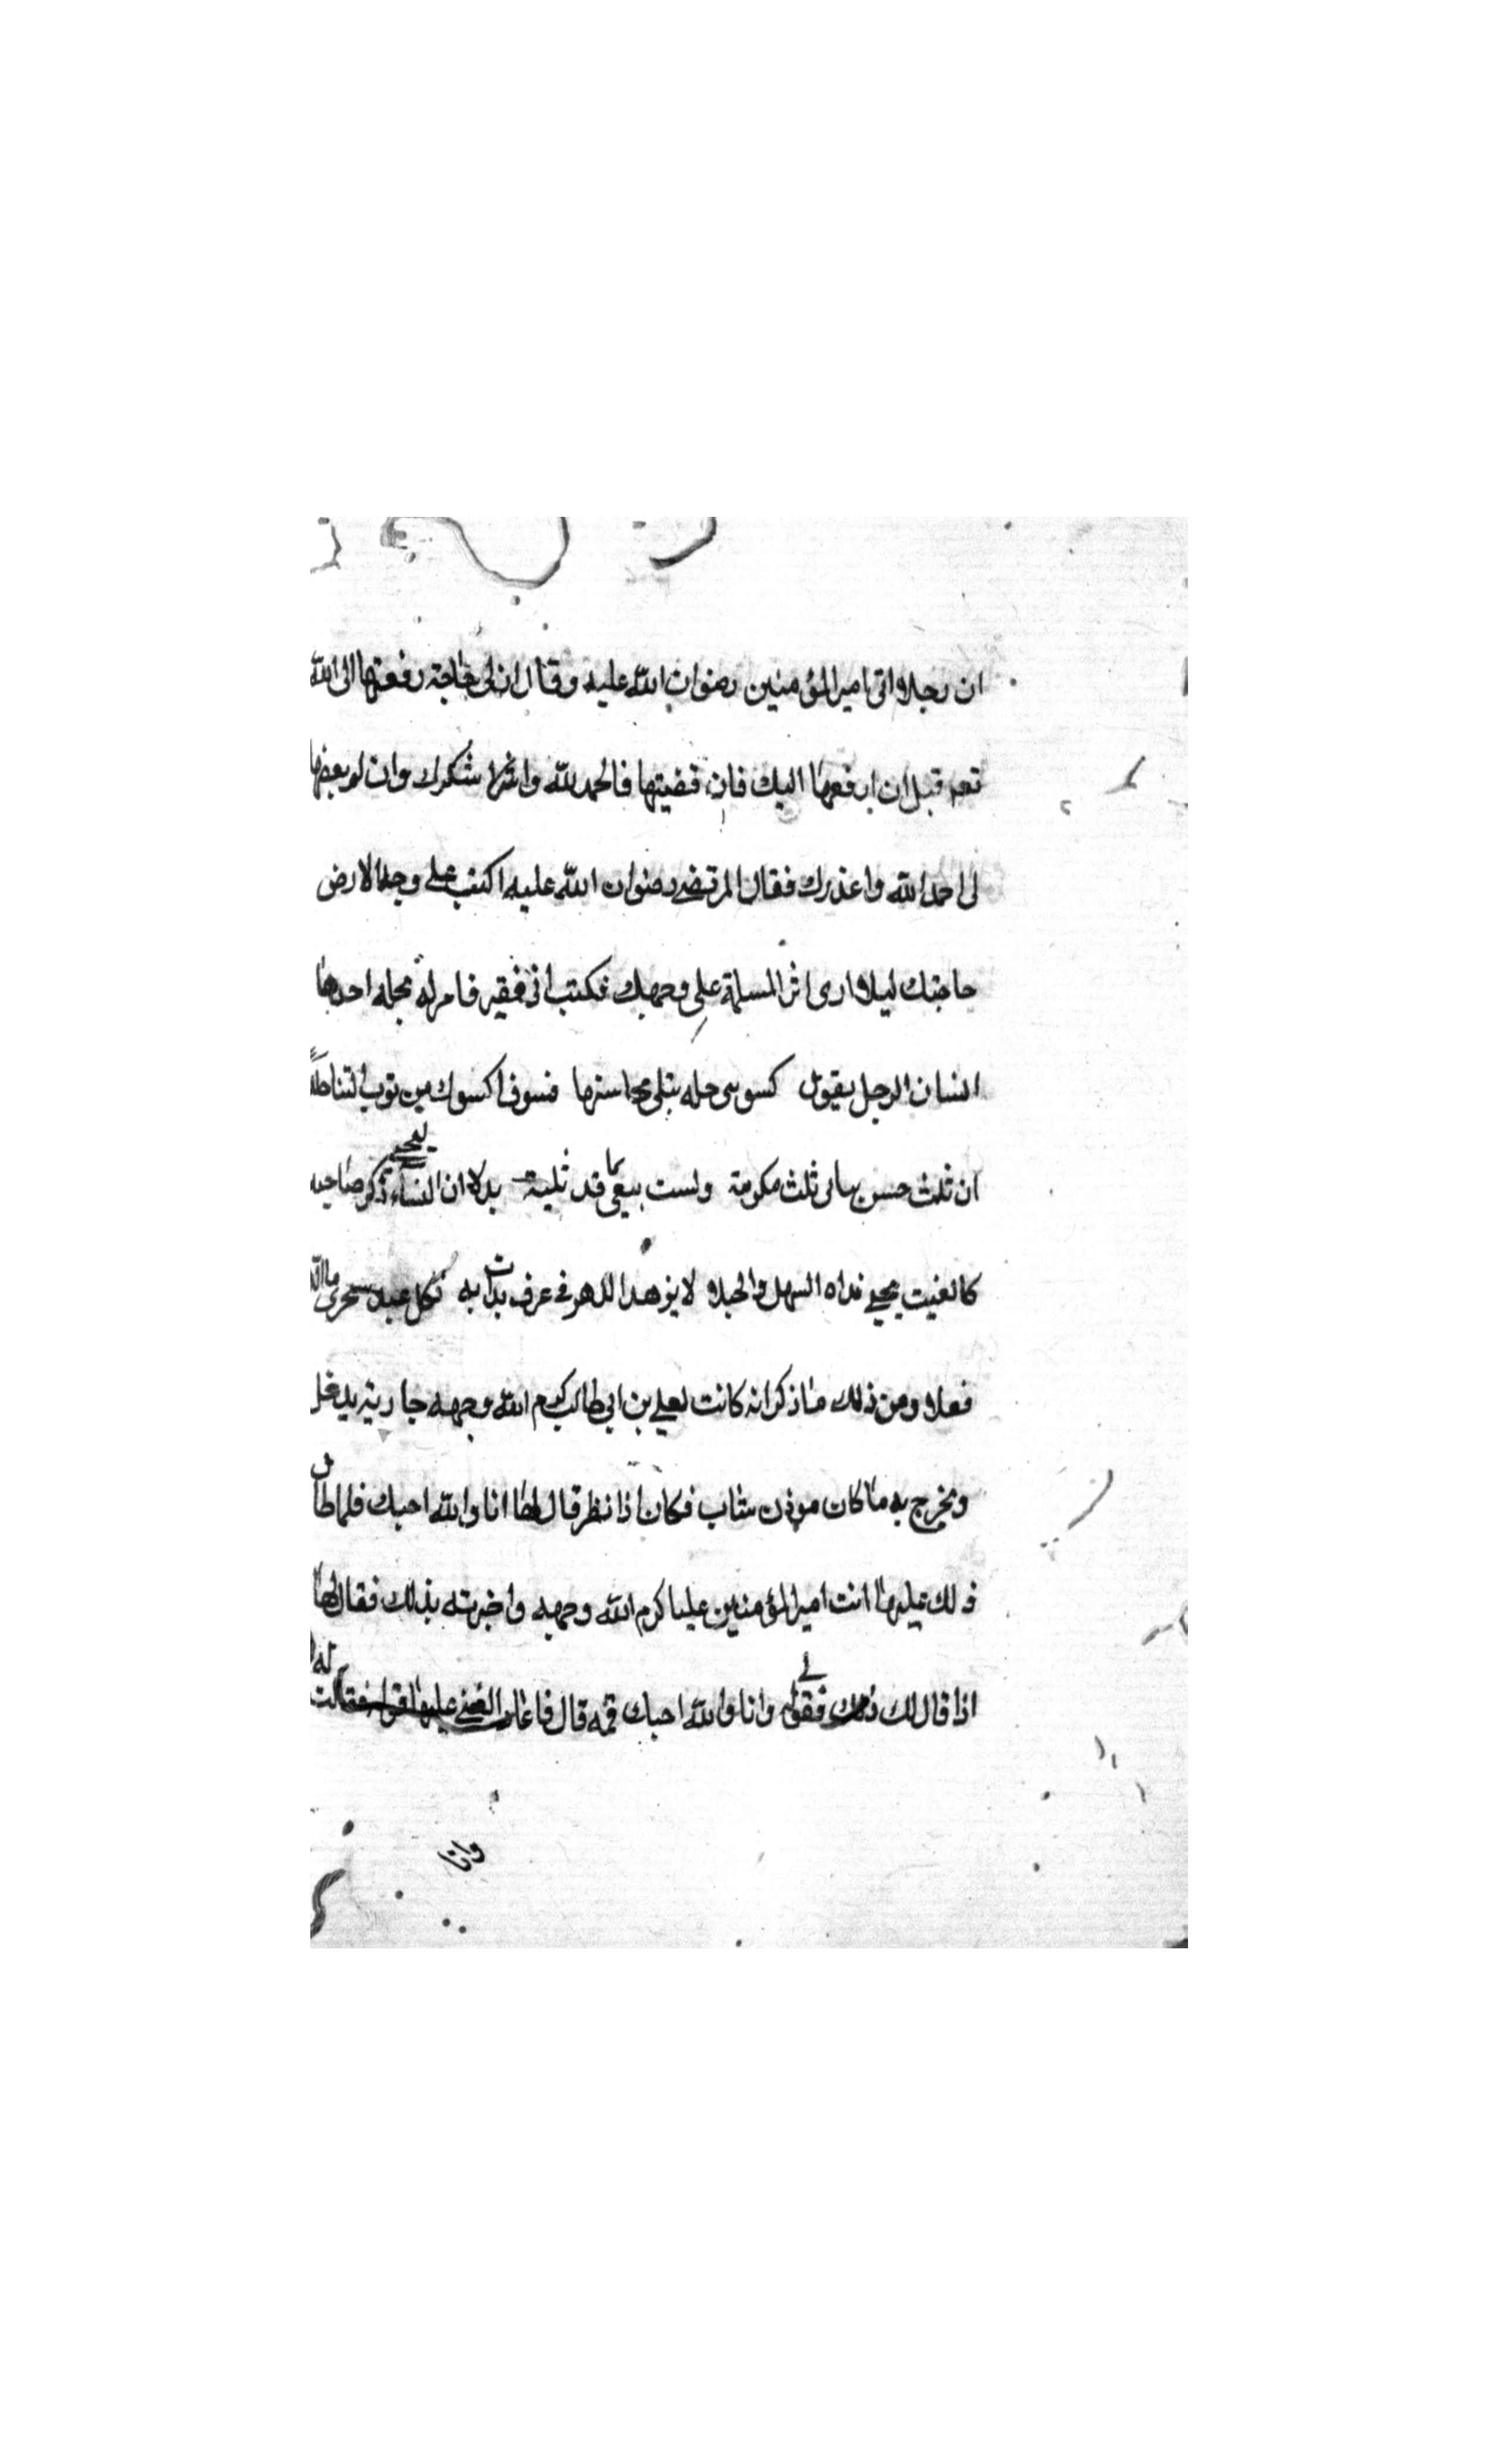 ان رجلا اتى امير المؤمنين رضوان الله عليه وقال ان لى حاجة رفعتها الى الله
قبل ان ارفعها اليك فان قضيتها فالحمد لله واشكرك وان لم بعضها
لى احمد الله واعذرك فقال المرتضى رضوان الله عليه اكتب على وجه الارض
حاجتك ليلا ارى اثر المسلة على وجهك فكتب انى فقير فامر له بحله احدها
انسان الرجل يقول كسوسى حله تبلى محاسنها فسوف اكسوك من ثوب الثنا حللا
ان ثلث حسن ساى ثلث مكرمة ولست ببغى بما قد ثلية بدلا ان الثناء ليحيى ذكر صاحبه
كالغيث يحيى نداه السهل والجبلا لا يزهد الدهر فى عرف بدات به فكل عبد سيجزى ما الله
فعلا ومن ذلك ما ذكر انه كانت لعلى بن ابى طالب كرم الله وجهه جارية يدخل
ويخرج به ما كان موذن شاب فكان اذا نظر قال لها انا والله احبك فلما طال
ذلك عليها اتت امير المؤمنين عليا كرم الله وجهه واخبرته بذلك فقال لها
اذا قال لك ذلك فقولى وانا والله احبك قمه قال فاعاد الفتى عليها فقالت له
وانا